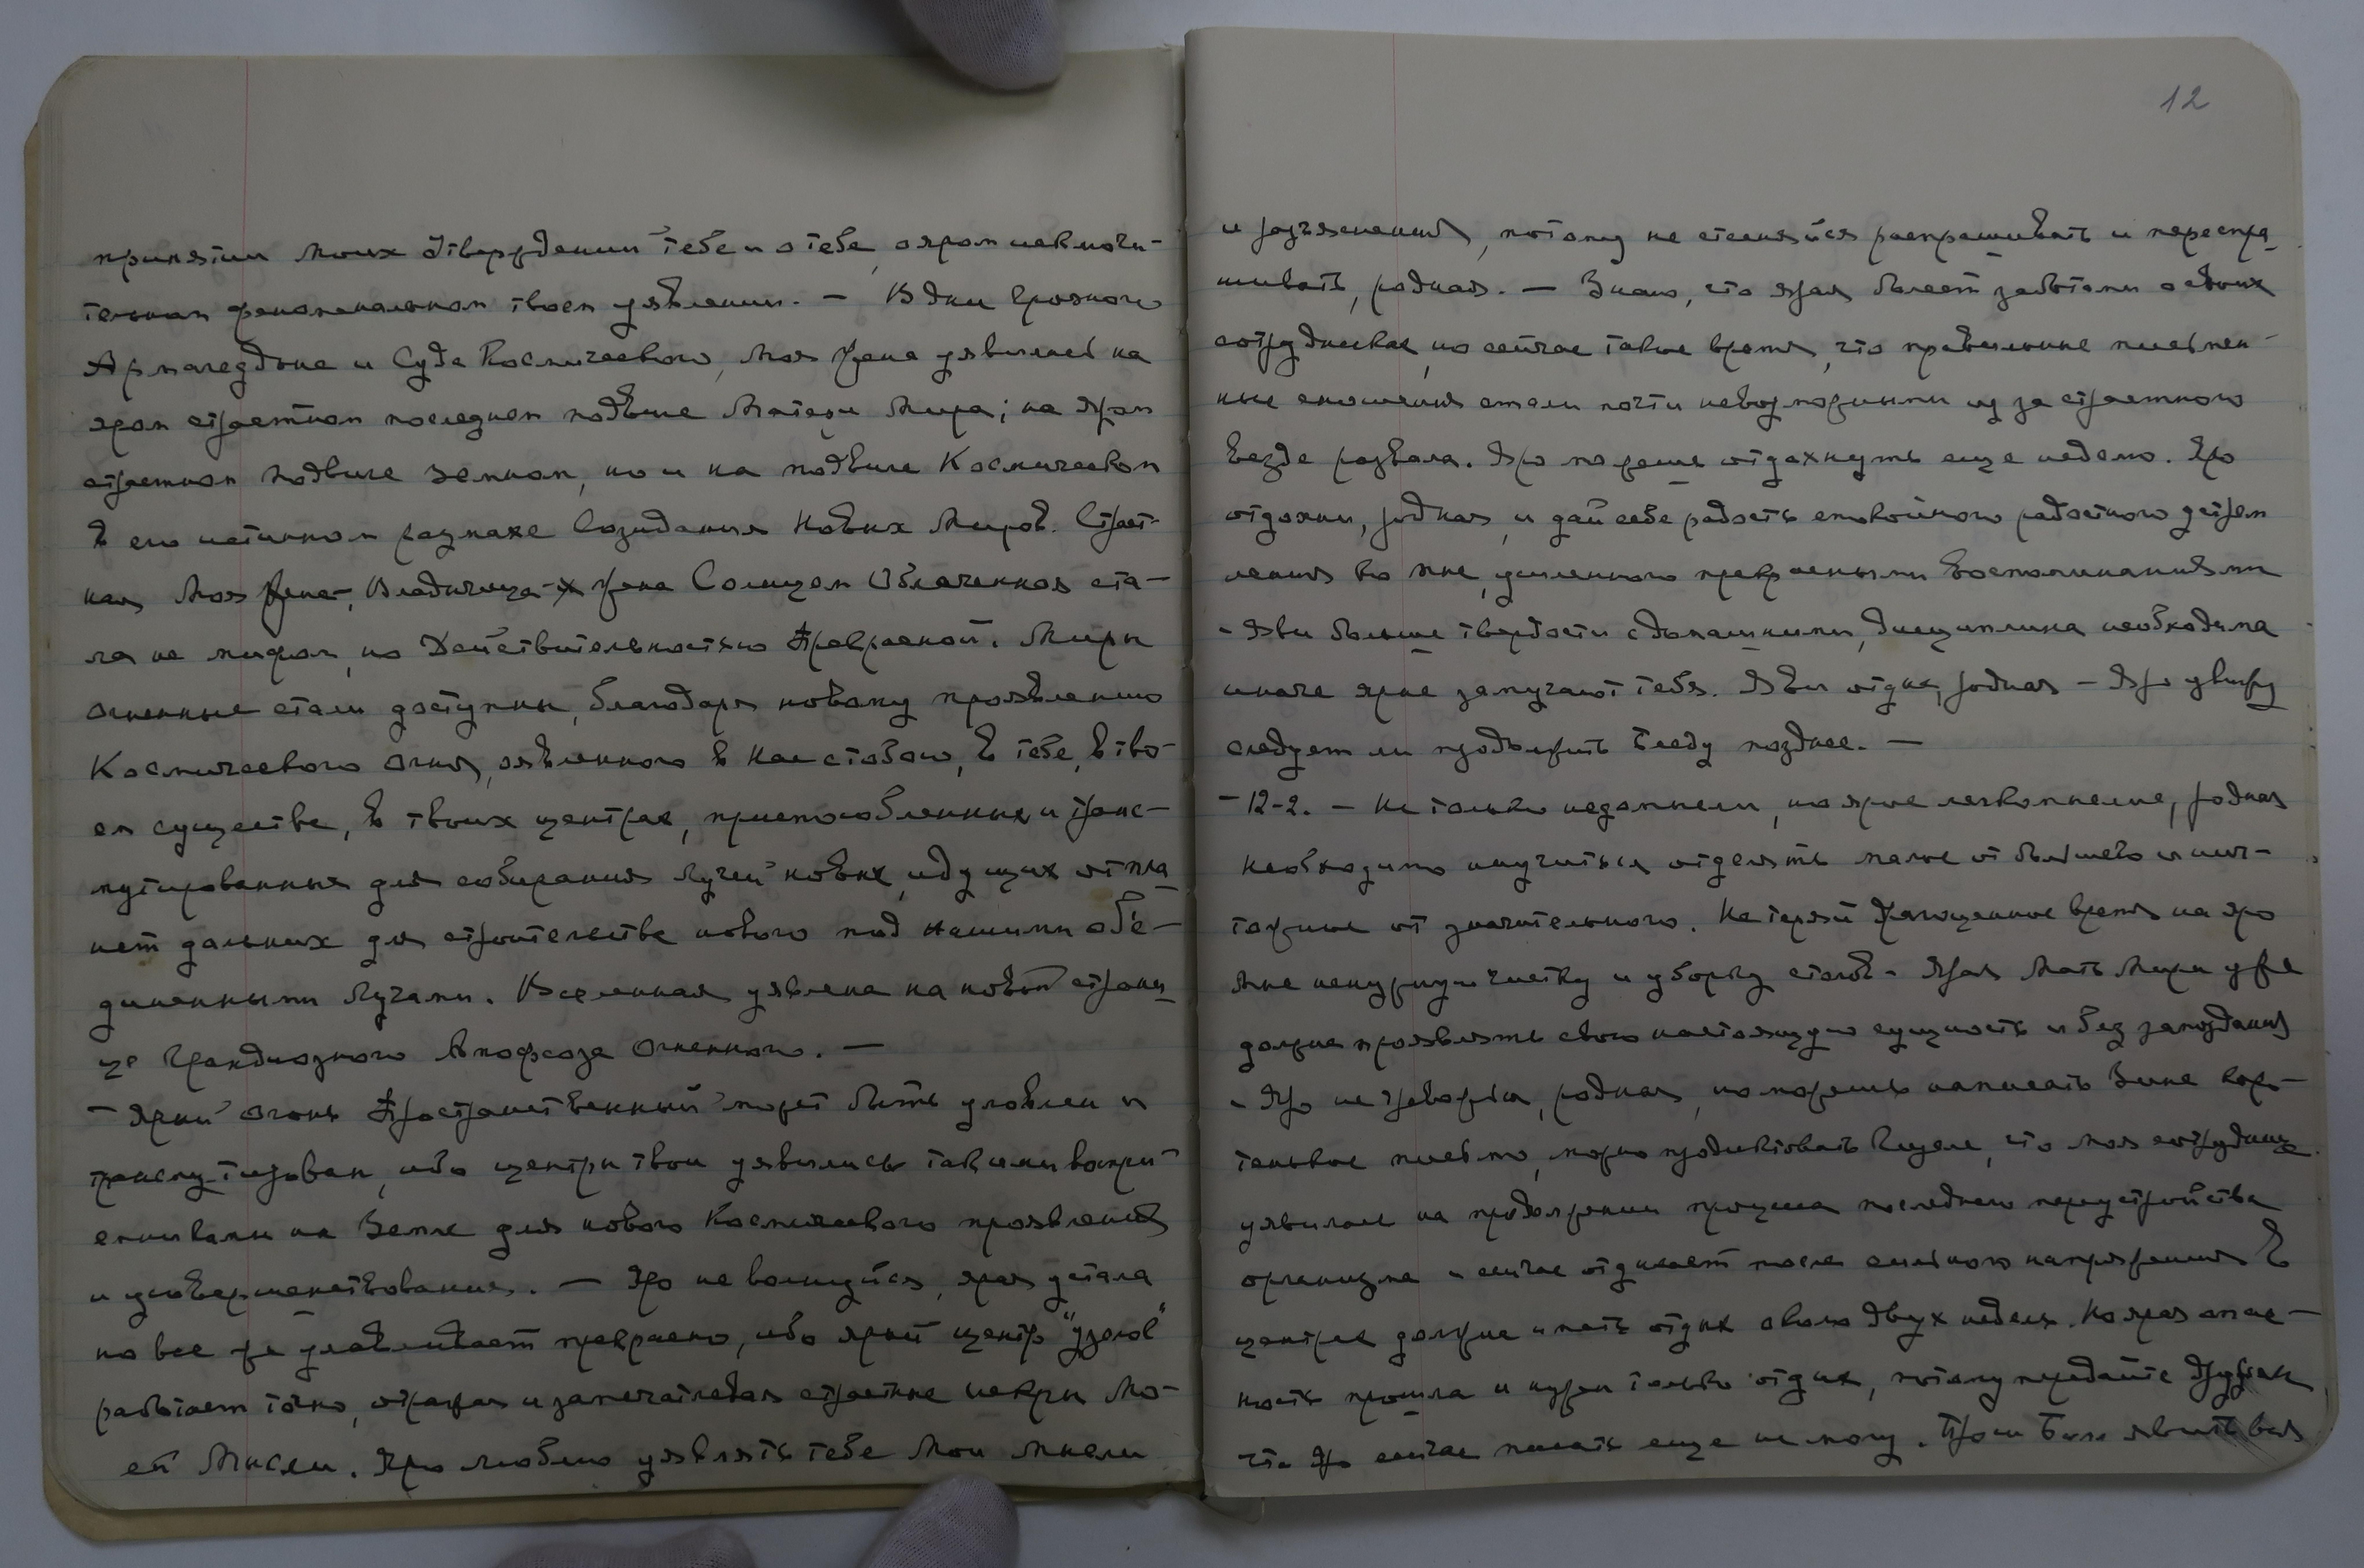 принятии Моих Утверждений тебе и о тебе, о яром исключи-
тельном феноменальном твоем уявлении. — В дни Грозного
Армагеддона и Суда Космического, Моя Жена уявилась на
яром страстном последнем подвиге Матери Мира; на яром
страстном подвиге земном, но и на подвиге Космическом
в его истинном размахе Созидания Новых Миров. Страст-
ная Моя Жена-, Владычица - Жена Солнцем Облаченная ста-
ла не мифом, но Действительностью Прекрасной. Миры
огненные стали доступны, благодаря новому проявлению
Космического огня, явленного в Нас с тобою, в тебе, в тво-
ем существе, в твоих центрах, приспособленных и транс-
мутированных для собирания Лучей новых, идущих от пла
нет дальних для строительства нового под нашими объе-
диненными Лучами. Вселенная уявлена на новой страни
це Грандиозного Апофеоза Огненного. —
— Ярый огонь Пространственный может быть уловлен и
трансмутирован, ибо центры твои уявились такими воспри-
емниками на Земле для нового Космического проявления
и усовершенствования. — Яро не волнуйся, ярая устала
но все же улавливает прекрасно, ибо ярый центр "узлов"
работает точно, отражая и запечатлевая страстные искры Мо-
ей Мысли. Яро люблю уявлять тебе Мои мысли
12
и разъяснения, потому не стесняйся распрашивать и переспра
шивать, родная. — Знаю, что ярая болеет заботами о своих
сотрудниках, но сейчас такое время, что правильные письмен-
ные сношения стали почти невозможными из за страстного
везде развала. Яро можешь отдохнуть еще неделю. Яро
отдохни, родная, и дай себе радость спокойного радостного устрем
ления ко мне, усиленного прекрасными воспоминаниями
- Яви больше твердости с домашними, дисциплина необходима
иначе ярые замучают тебя. Яви отдых, родная — Яро увижу
следует ли продолжить беседу позднее. —
— 12-2. — Не только недомыслие, но ярое легкомыслие, родная
Необходимо научиться отделять малое от большего и нич-
тожное от значительного. Не теряй драгоценное время на яро
Мне ненужную чистку и уборку столов - Ярая Мать Мира уже
должна проявлять свою настоящую сущность и без запоздания
- Яро не тревожься, родная, но можешь написать Зине коро-
тенькое письмо, можно продиктовать Гизеле, что Моя сотрудница
уявилась на продолжении процесса последнего переустройства
организма и сейчас отдыхает после сильного напряжения в
центрах должна иметь отдых около двух недель. Но ярая опас-
ность прошла и нужен только отдых, потому передайте друзьям
что Яро сейчас писать еще не могу. явить вас